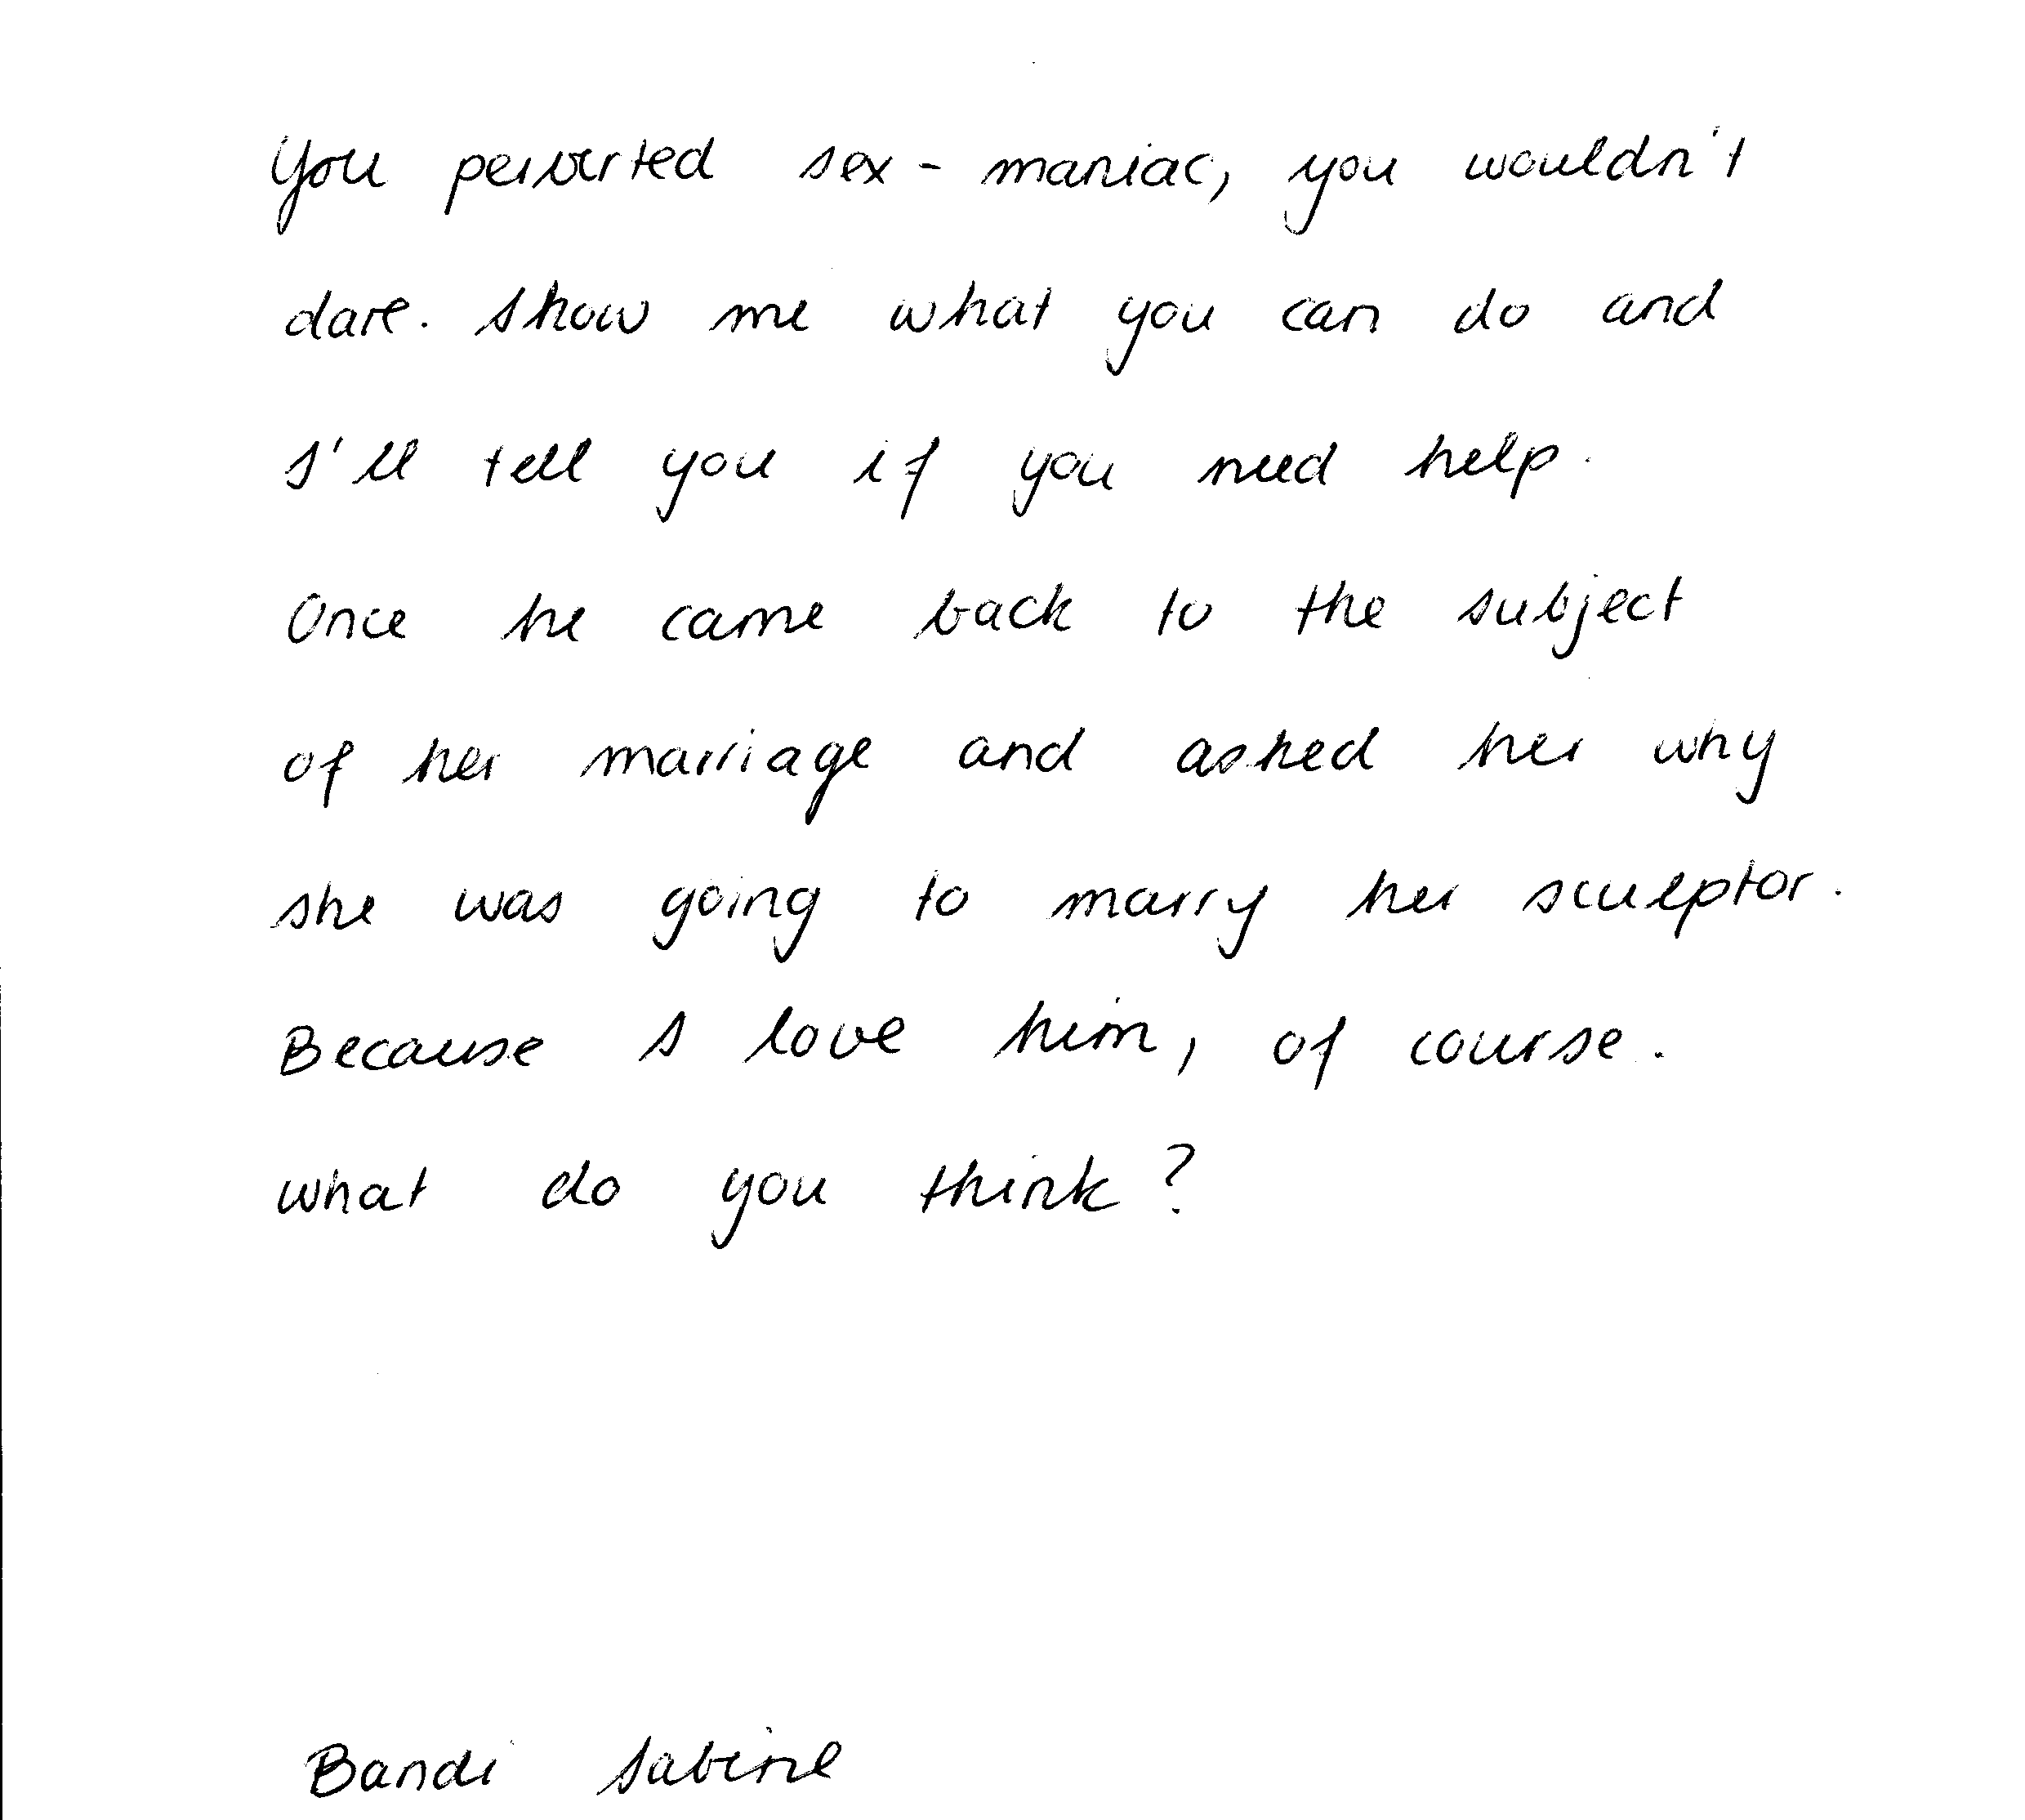 You perverted sex - maniac, you wouldn't
dare. Show me what you can do and
I'll tell you if you need help.
Once he came back to the subject
of her marriage and asked her why
she was going to marry her sculptor.
Because I love him, of course.
what do you think?
Bandi Sabine